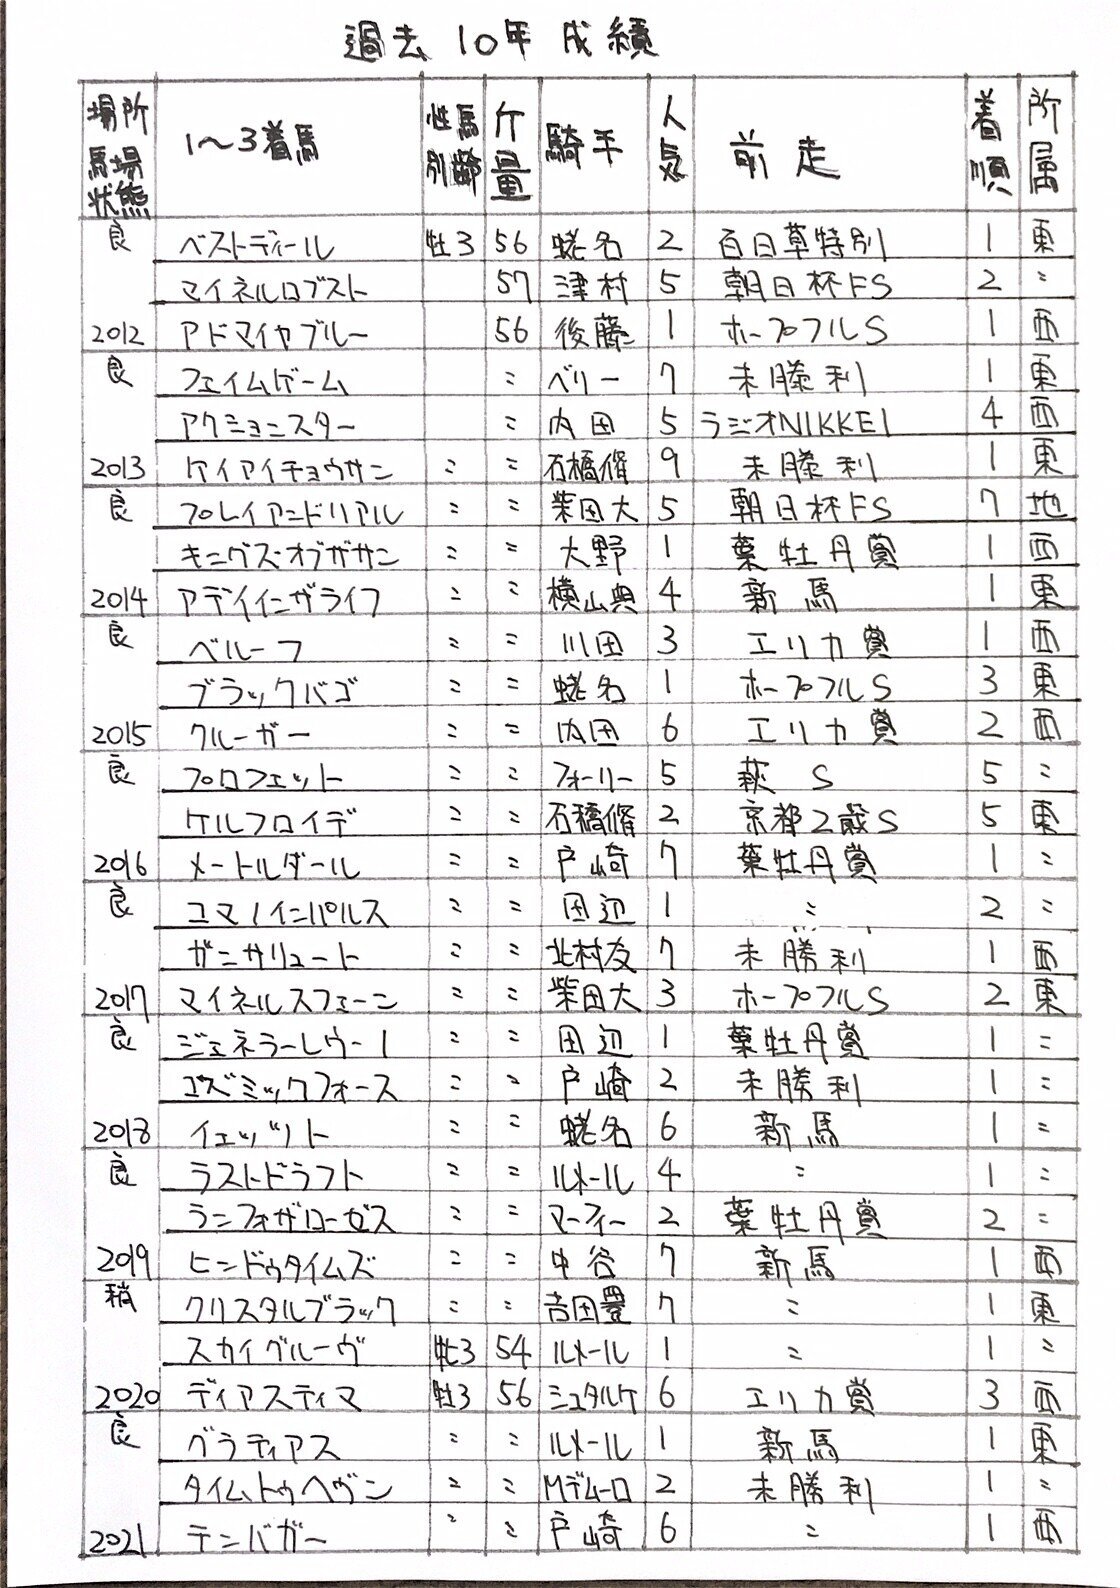 過去10年成績
場所 馬場状態 1〜3着馬 性別 馬齢 斤量 騎手 人気 前走 着順 所属
良 ベストディール 牡3 56 蛯名 2 百日草特別 1 東
マイネルロブスト 57 津村 5 朝日杯FS 2 〃
2012 アドマイヤブルー 56 後藤 1 ホープフルS 1 西
良 フェイムゲーム 〃 ベリー 7 未勝利 1 東
アクションスター 〃 内田 5 ラジオNIKKEI 4 西
2013 ケイアイチョウサン 〃 〃 石橋脩 9 未勝利 1 東
良 プレイアンドリアル 〃 〃 柴田大 5 朝日杯FS 7 地
キングズオブザサン 〃 〃 大野 1 葉牡丹賞 1 西
2014 アデイインザライフ 〃 〃 横山典 4 新馬 1 東
良 ベルーフ 〃 〃 川田 3 エリカ賞 1 西
ブラックバゴ 〃 〃 蛯名 1 ホープフルS 3 東
2015 クルーガー 〃 〃 内田 6 エリカ賞 2 西
良 プロフェット 〃 〃 フォーリー 5 萩S 5 〃
ケルフロイデ 〃 〃 石橋脩 2 京都2歳S 5 東
2016 メートルダール 〃 〃 戸崎 7 葉牡丹賞 1 〃
良 コマノインパルス 〃 〃 田辺 1 〃 2 〃
ガンサリュート 〃 〃 北村友 7 未勝利 1 西
2017 マイネルスフェーン 〃 〃 柴田大 3 ホープフルS 2 東
良 ジェネラーレウーノ 〃 〃 田辺 1 葉牡丹賞 1 〃
コズミックフォース 〃 〃 戸崎 2 未勝利 1 〃
2018 イェッツト 〃 〃 蛯名 6 新馬 1 〃
良 ラストドラフト 〃 〃 ルメール 4 〃 1 〃
ランフォザローゼス 〃 〃 マーフィー 2 葉牡丹賞 2 〃
2019 ヒンドゥタイムズ 〃 〃 中谷 7 新馬 1 西
稍 クリスタルブラック 〃 〃 吉田豊 7 〃 1 東
スカイグルーヴ 牝3 54 ルメール 1 〃 1 〃
2020 ディアスティマ 牡3 56 シュタルケ 6 エリカ賞 3 西
良 グラティアス 〃 〃 ルメール 1 新馬 1 東
タイムトゥヘヴン 〃 〃 Mデムーロ 2 未勝利 1 〃
2021 テンバガー 〃 〃 戸崎 6 〃 1 西